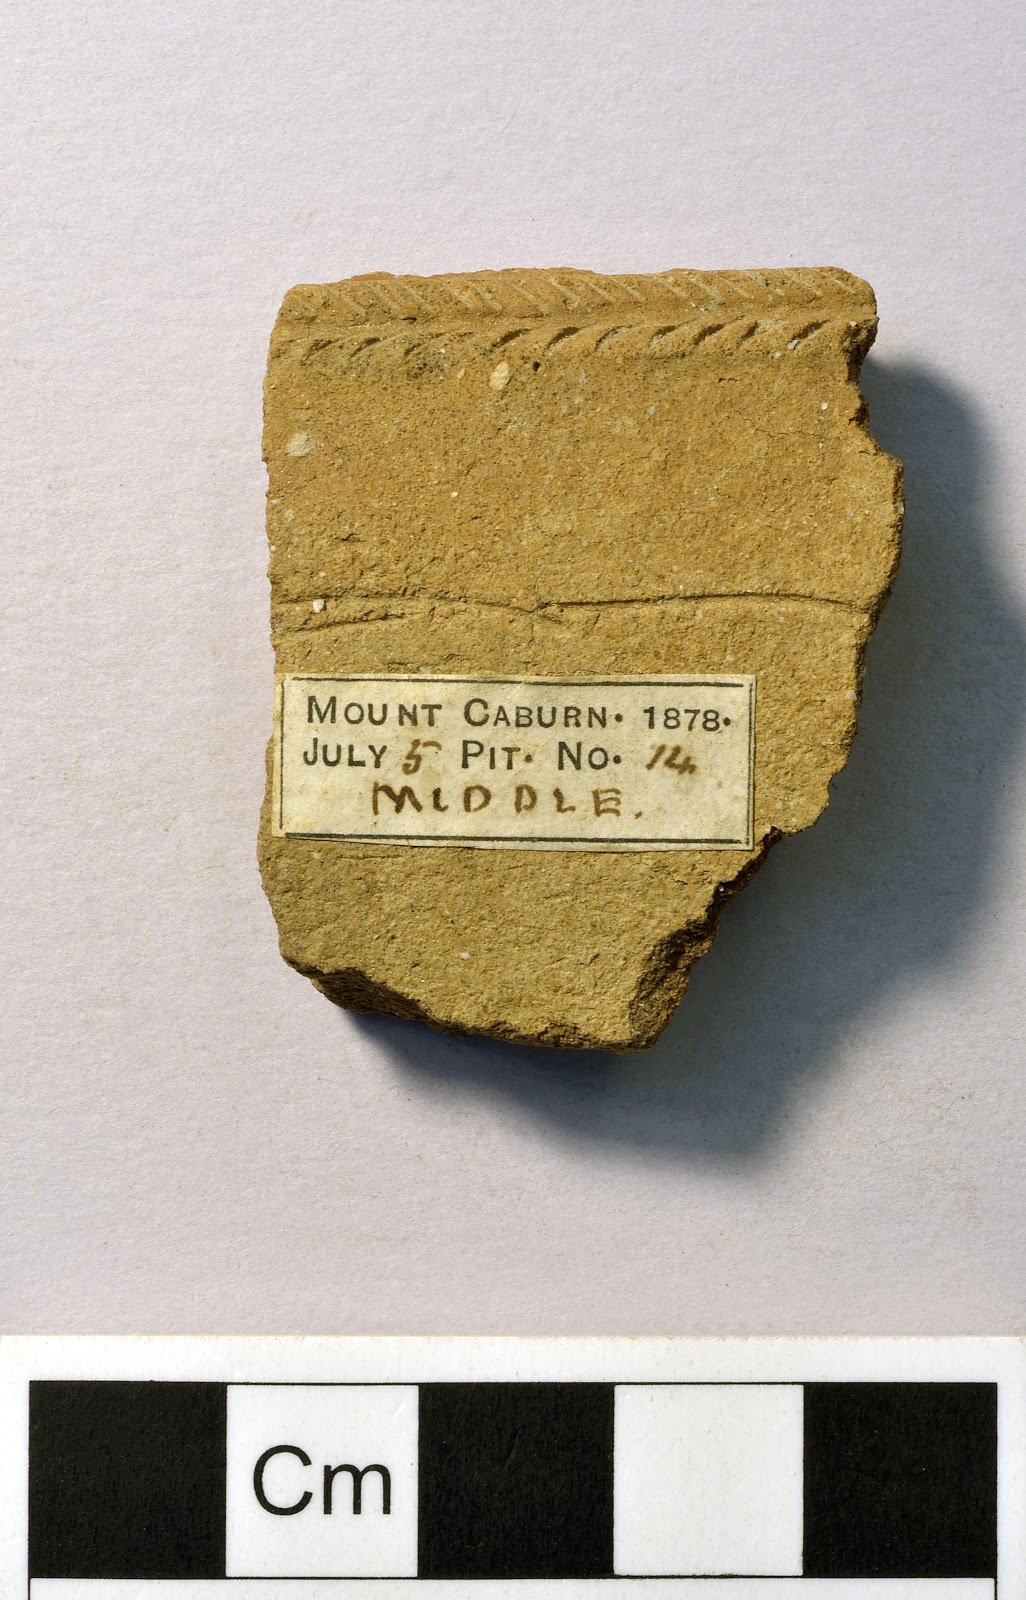 MOUNT CABURN. 1878.
JULY 5 PIT. NO. 14
MIDDLE.
Cm